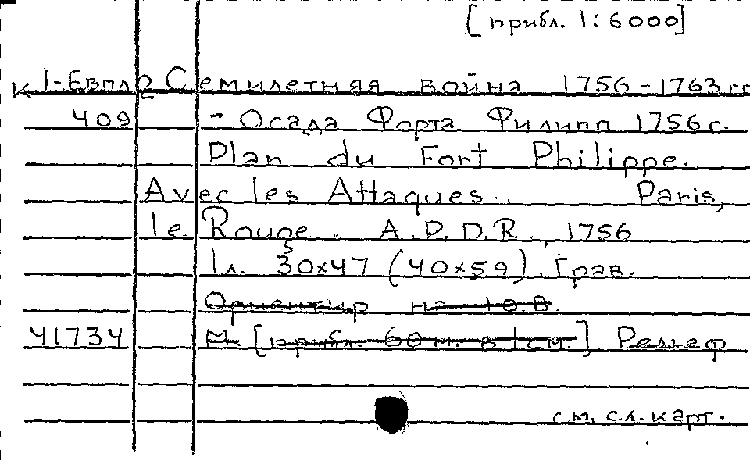 [прибл. 1:6000]
К 1-Евпл2 Семилетняя война 1756-1763гг
409 - Осада Форта Филипп 1756г.
Plan du Fort Philippe.
Avec les Attaques. Paris,
le Rouge. A.D.D.R., 1756
1л. 30x47 (40x59). Грав.
Ориентир на Ю.В.
41734 М [прибл. 60м. в 1см.] Рельеф
см. сл. карт.